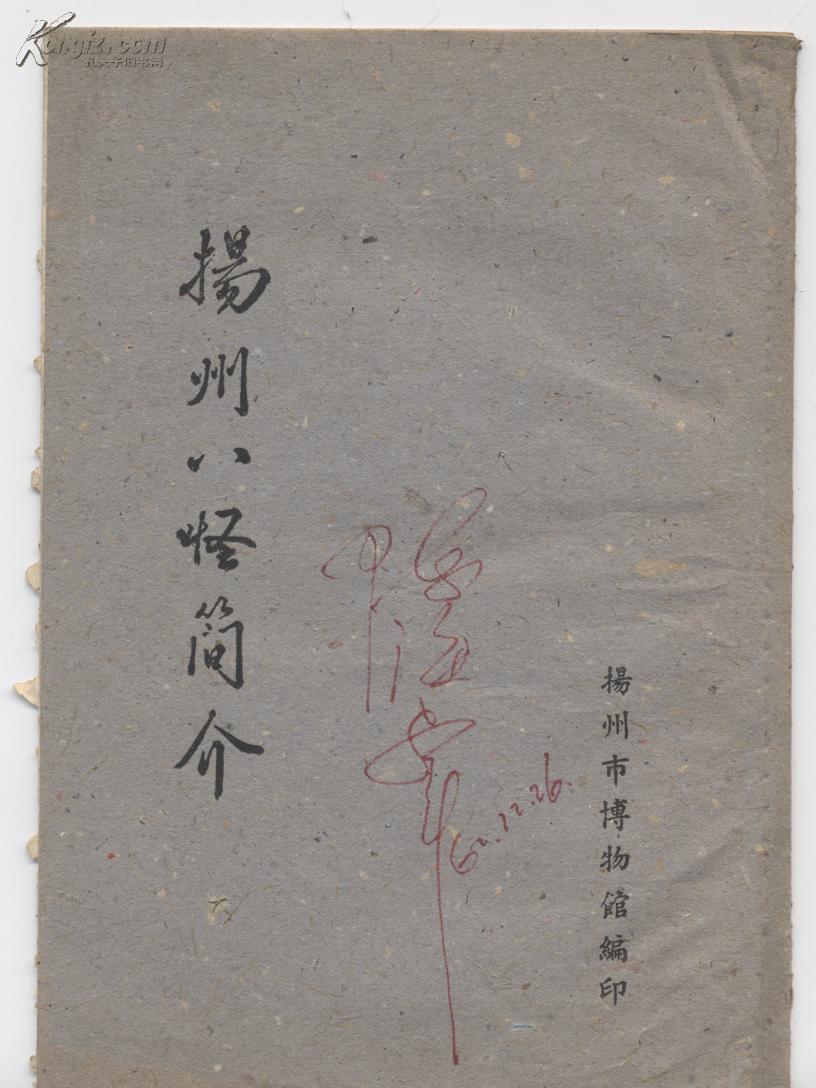 Kongfz.com
孔夫子旧书网
揚州八怪简介
62.12.26.
揚州市博物館編印